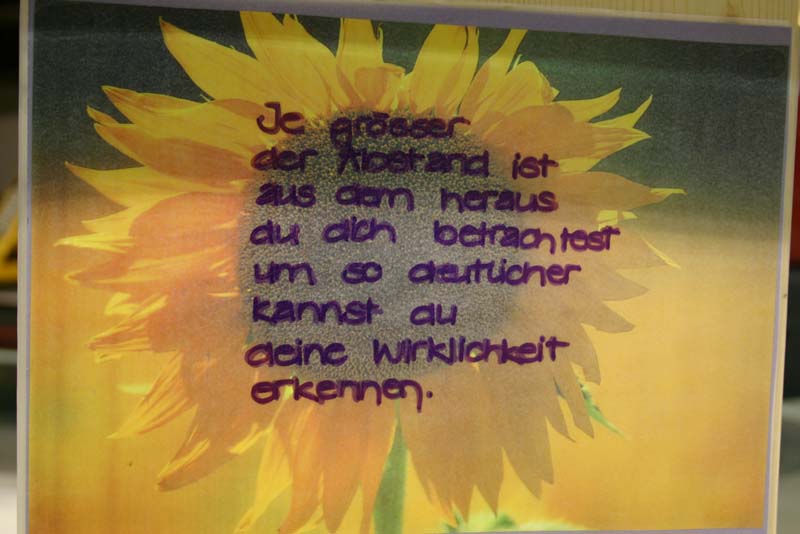 Je grösser
der Abstand ist
aus dem heraus
du dich betrachtest
um so deutlicher
kannst du
deine Wirklichkeit
erkennen.